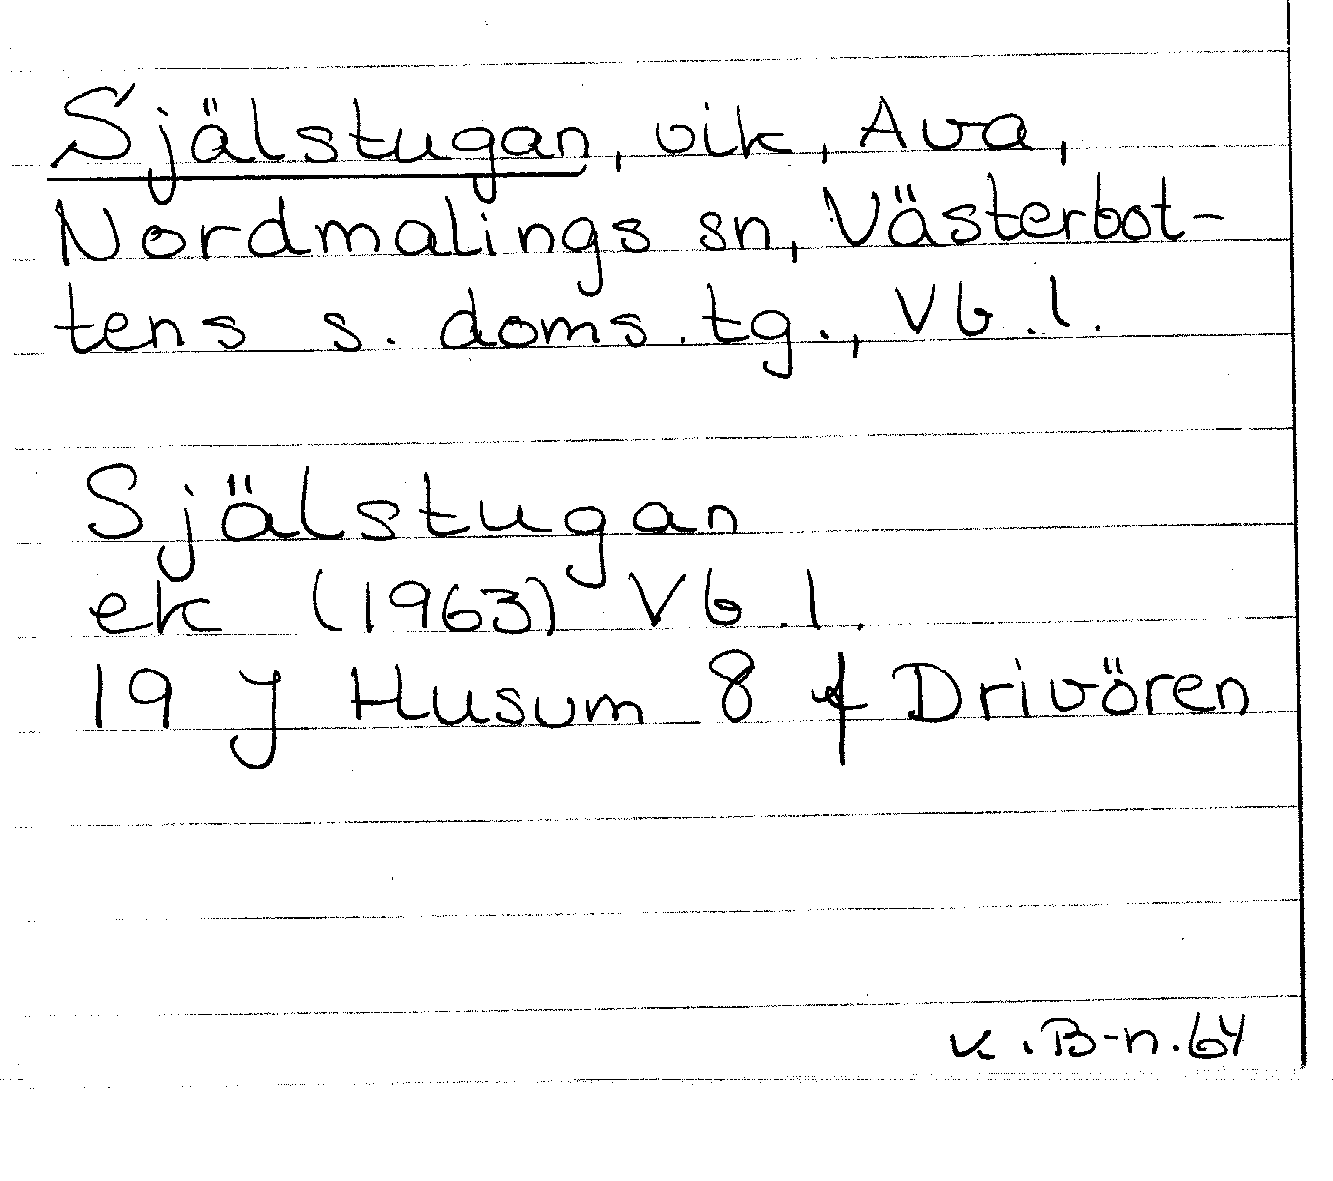 Själstugan, vik, Ava,
Nordmalings sn, Västerbot-
tens s. doms. tg., Vb. l.
Själstugan
ek (1963) Vb. l.
19 J Husum 8 f Drivören
K. B-n. 64